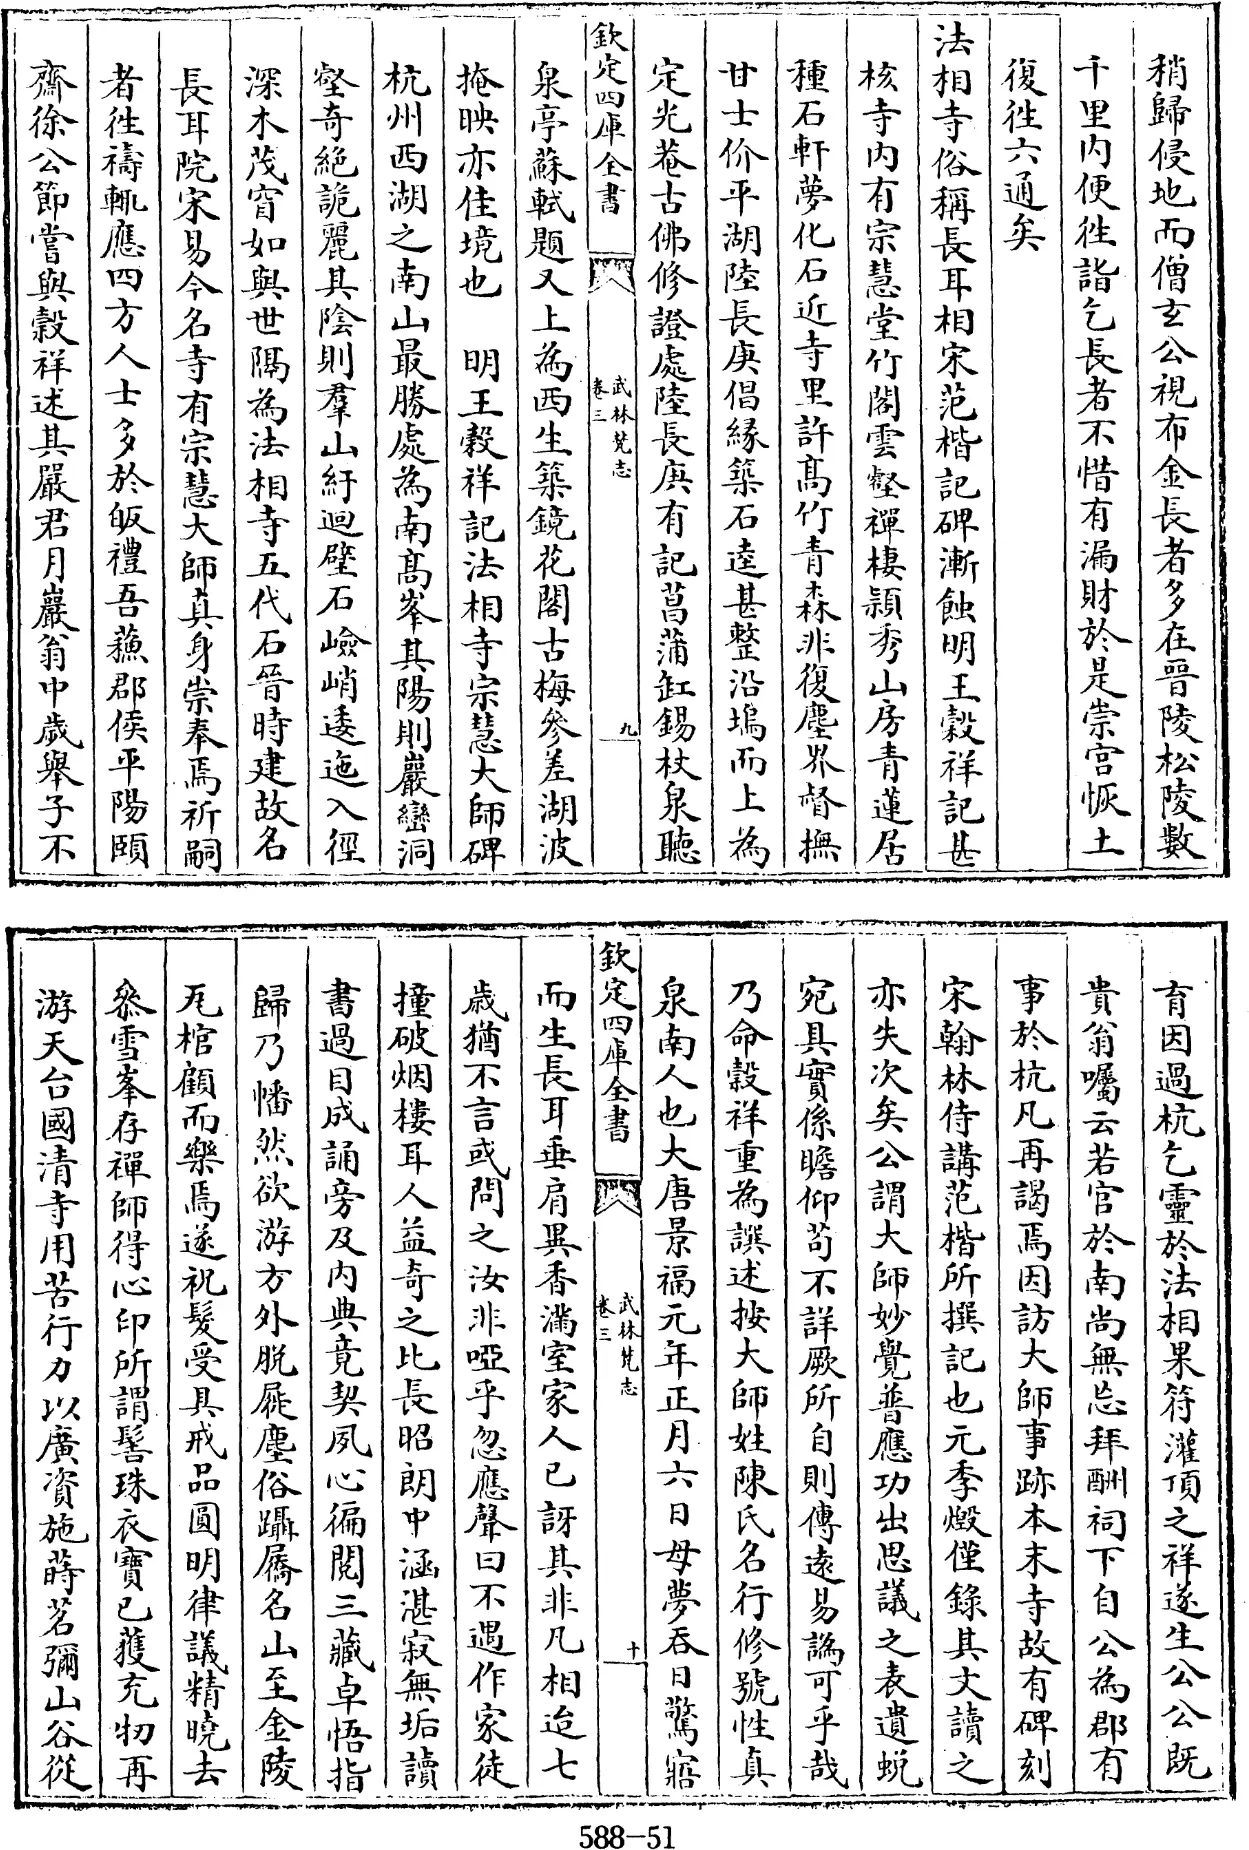 稍歸侵地而僧玄公視布金長者多在晉陵松陵數
千里內便徃詣乞長者不惜有漏財於是崇宫恢土
復徃六通矣
法相寺俗稱長耳相宋范楷記碑漸蝕明王穀祥記甚
核寺内有宗慧堂竹閣雲壑禪棲穎秀山房青蓮居
種石軒夢化石近寺里許髙竹青森非復塵界督撫
甘士价平湖陸長庚倡緣築石逵甚整沿塢而上為
定光菴古佛修證處陸長庚有記菖蒲缸錫杖泉聽
欽定四庫全書
武林梵志
卷三
九
泉亭蘇軾題又上為西生築鏡花閣古梅參差湖波
掩映亦佳境也 明王穀祥記法相寺宗慧大師碑
杭州西湖之南山最勝處為南髙峯其陽則巖巒洞
壑奇絶詭麗其陰則羣山紆迴壁石嶮峭逶迤入徑
深木茂窅如與世隔為法相寺五代石晉時建故名
長耳院宋易今名寺有宗慧大師真身崇奉焉祈嗣
者徃禱輒應四方人士多於皈禮吾蘓郡侯平陽頤
齋徐公節嘗與穀祥述其嚴君月巖翁中歲舉子不
育因過杭乞靈於法相果符灌頂之祥遂生公公既
貴翁囑云若官於南尚無忘拜酬祠下自公為郡有
事於杭凡再謁焉因訪大師事跡本末寺故有碑刻
宋翰林侍講范楷所撰記也元季燬僅錄其文讀之
亦失次矣公謂大師妙覺普應功出思議之表遺蛻
宛具實係瞻仰苟不詳厥所自則傳遠易譌可乎哉
乃命穀祥重為譔述按大師姓陳氏名行修號性真
泉南人也大唐景福元年正月六日母夢吞日驚寤
欽定四庫全書
武林梵志
卷三
十
而生長耳垂肩異香滿室家人已訝其非凡相迨七
歲猶不言或問之汝非啞乎忽應聲曰不遇作家徒
撞破烟樓耳人益奇之比長昭朗中涵湛寂無垢讀
書過目成誦旁及内典竟契夙心徧閱三藏卓悟指
歸乃幡然欲游方外脱屣塵俗躡屩名山至金陵
瓦棺顧而樂焉遂祝髮受具戒品圓明律議精曉去
叅雪峯存禪師得心印所謂髻珠衣寶已獲充牣再
游天台國清寺用苦行力以廣資施蒔茗彌山谷從
588-51